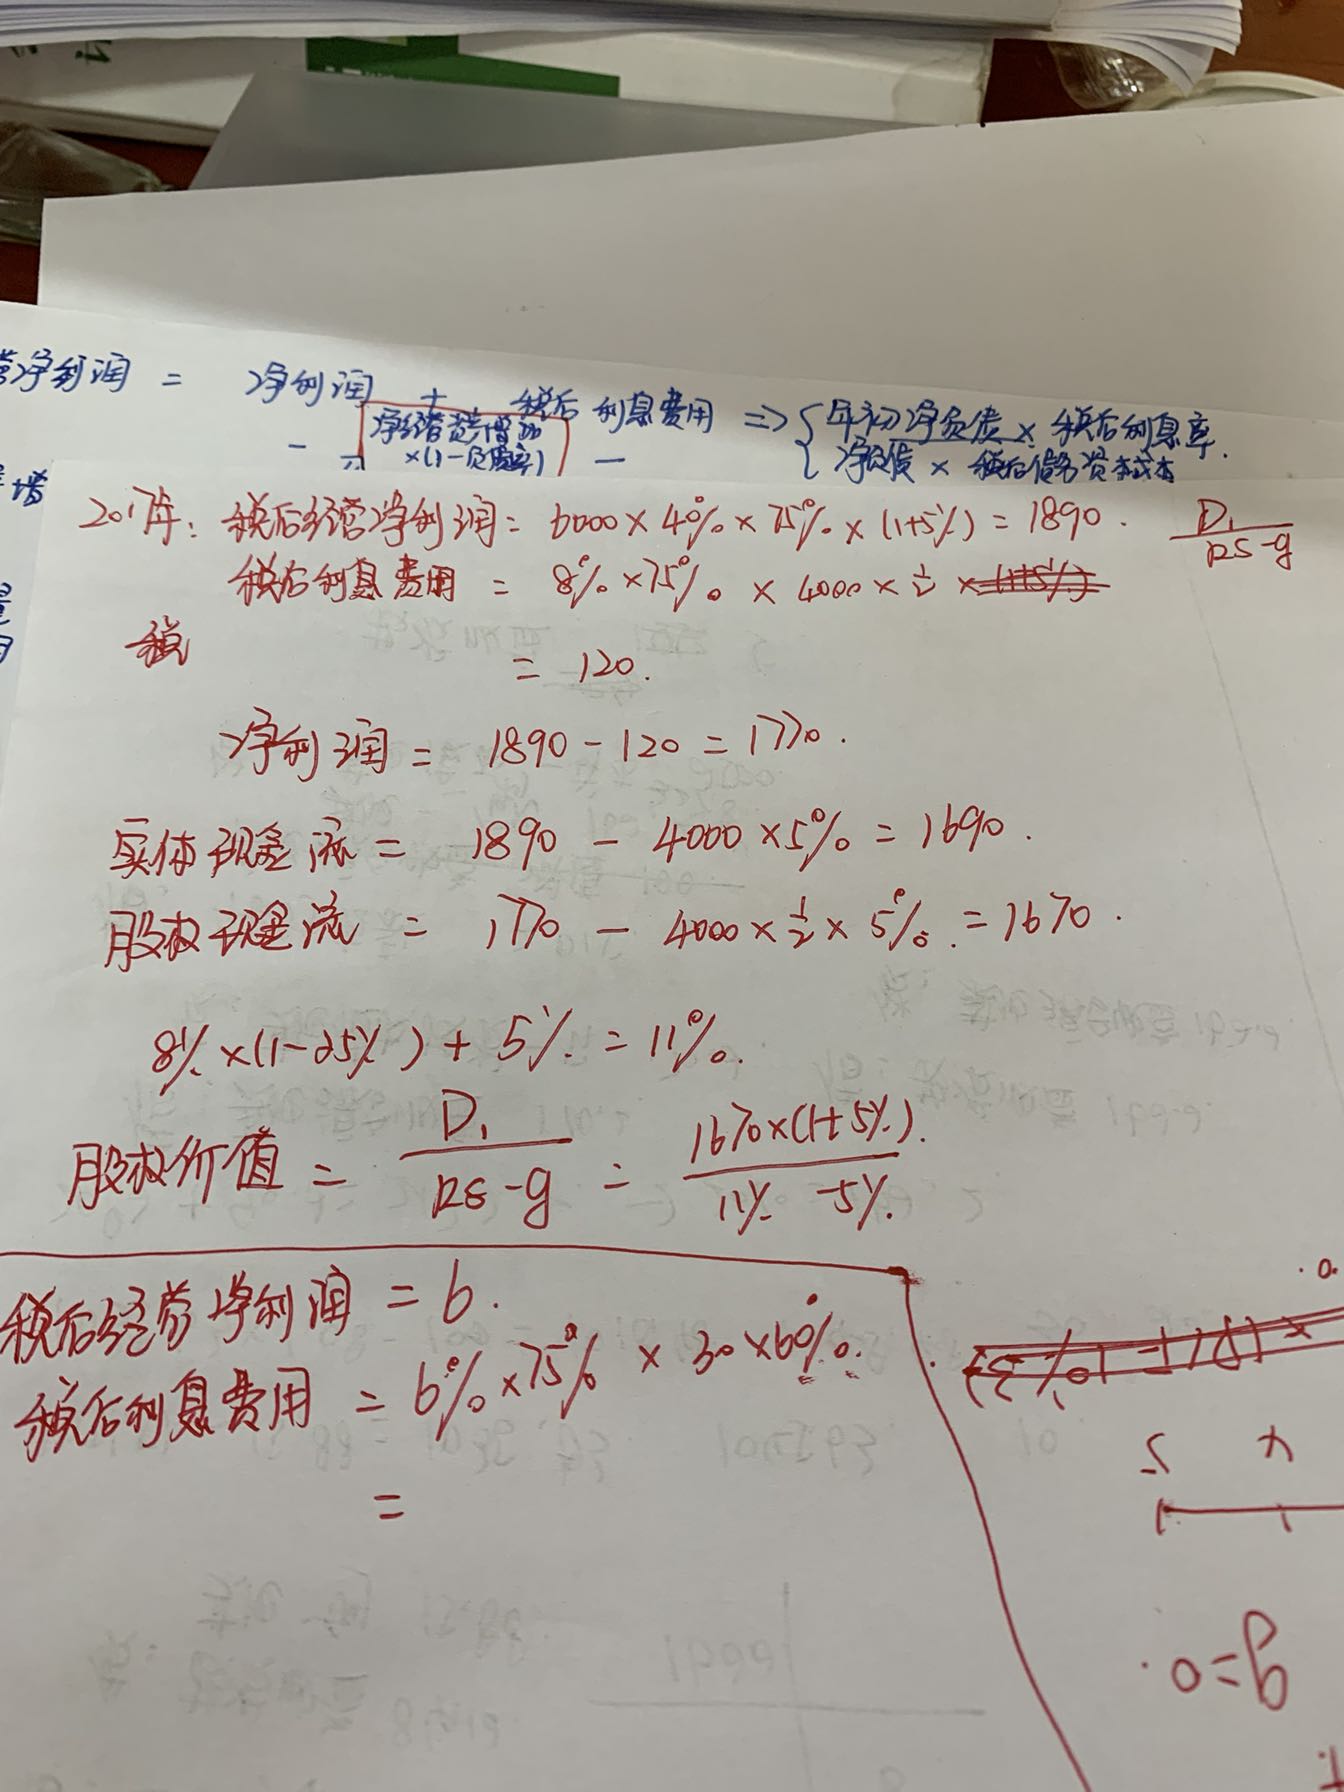 营净利润 = 净利润 + 税后利息费用 => { 年初净负债 × 税后利息率.
- 净经营资产增加 ×(1-负债率) - 净负债 × 税后债务资本成本
增
2017年: 税后经营净利润 = 6000 × 40% × 75% × (1+5%) = 1890. D₁/(rs-g)
税后利息费用 = 8% × 75% × 4000 × 1/2 × (1+5%)
税
= 120.
净利润 = 1890 - 120 = 1770.
实体现金流 = 1890 - 4000 × 5% = 1690.
股权现金流 = 1770 - 4000 × 1/2 × 5% = 1670.
8% × (1-25%) + 5% = 11%.
股权价值 = D₁/(rs-g) = 1670×(1+5%)/(11%-5%).
税后经营净利润 = 6.
税后利息费用 = 6% × 75% × 30 × 60%.
=
g=0.